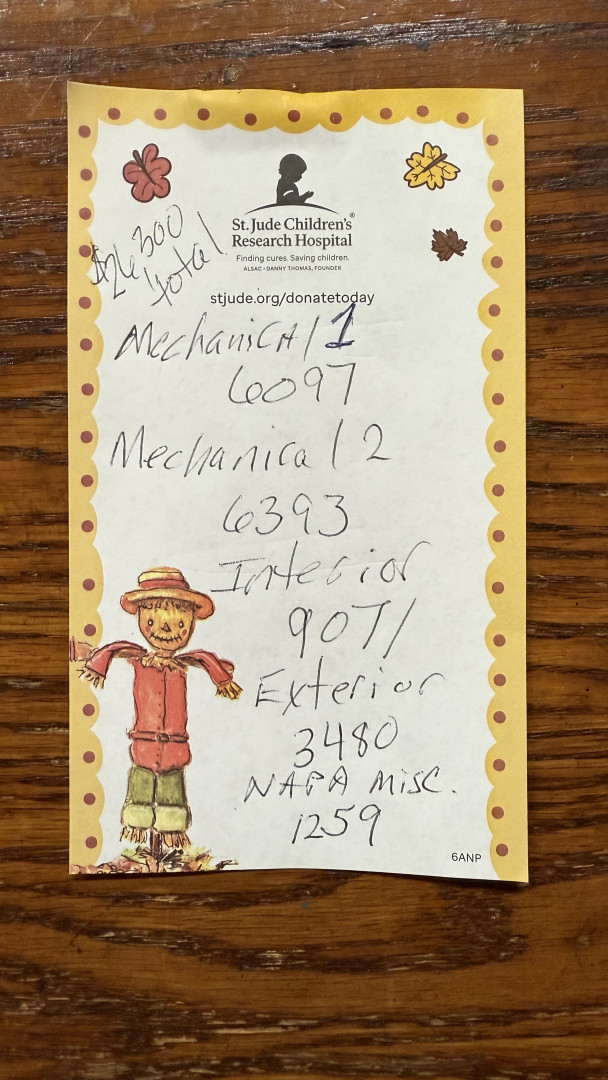 St. Jude Children's®
Research Hospital
Finding cures. Saving children.
ALSAC • DANNY THOMAS, FOUNDER
stjude.org/donatetoday
$26300
total
Mechanical 1
6097
Mechanical 2
6393
Interior
9071
Exterior
3480
NAPA Misc.
1259
6ANP